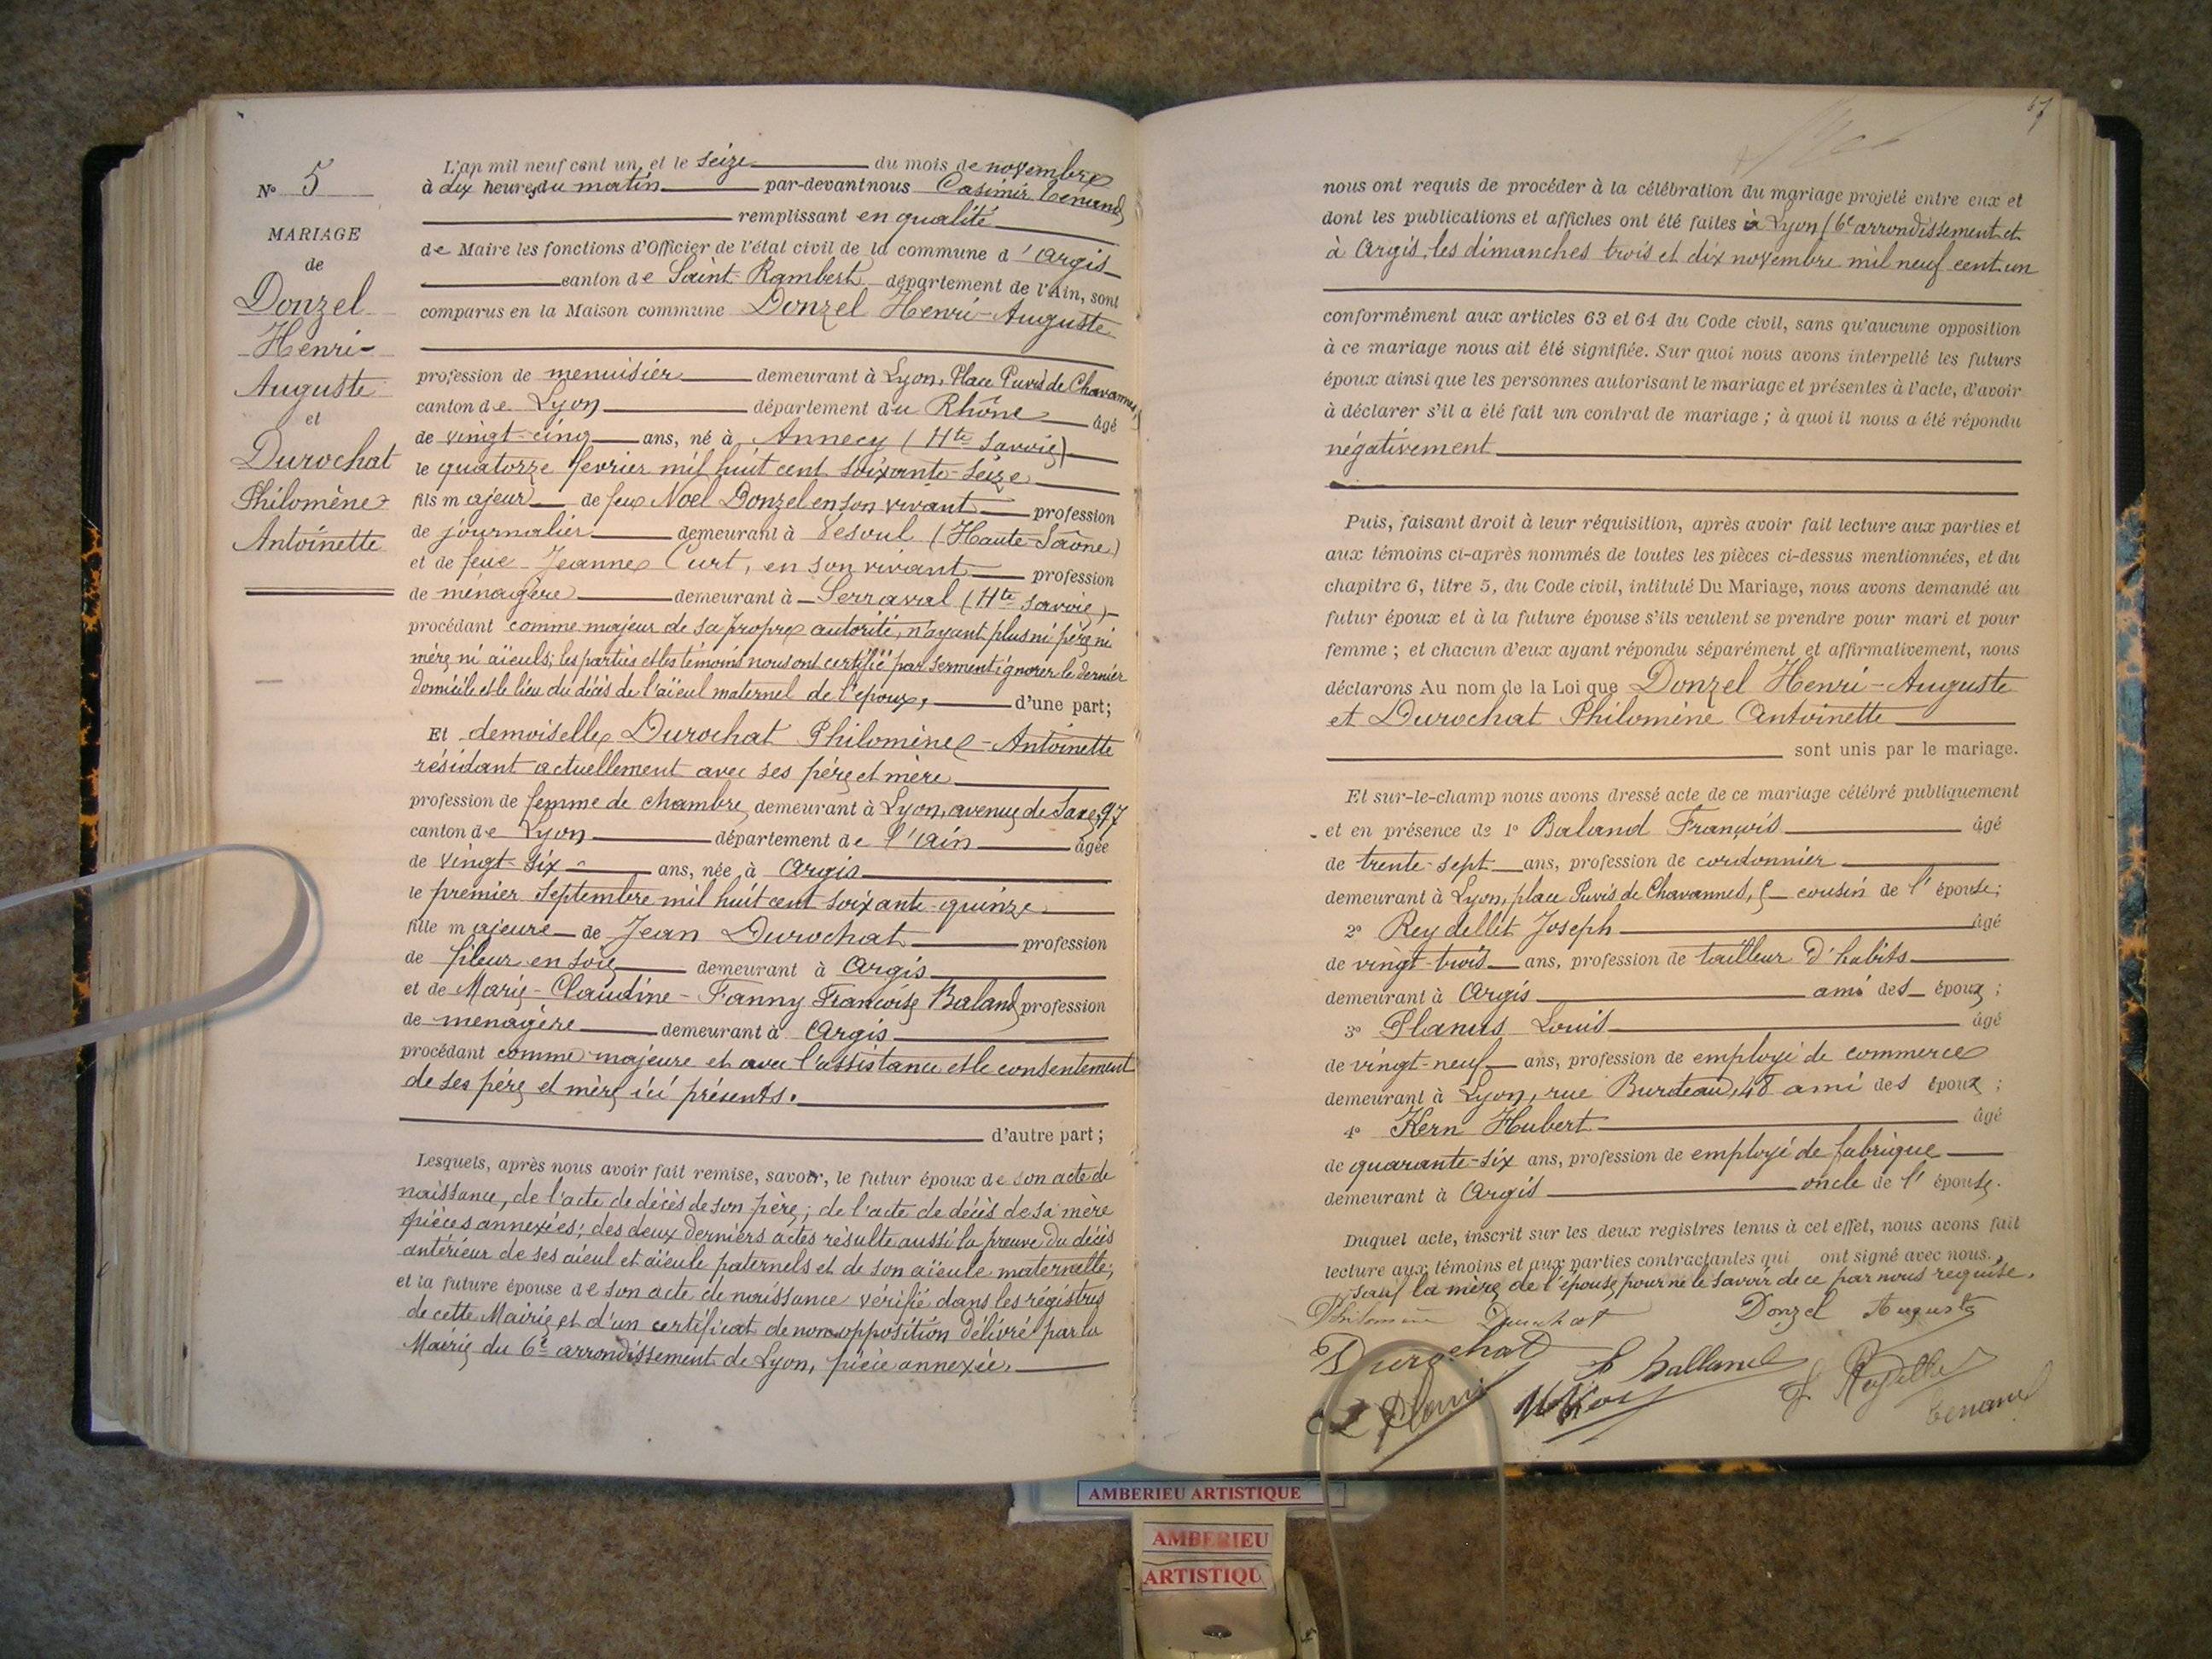 N° 5
MARIAGE
de
Donzel
Henri-
Auguste
et
Durochat
Philomène
Antoinette
L'an mil neuf cent un, et le seize du mois de novembre
à dix heures du matin par-devant nous Casimir Tenand
remplissant en qualité
de Maire les fonctions d'Officier de l'état civil de la commune d'Argis
canton de Saint-Rambert département de l'Ain, sont
comparus en la Maison commune Donzel Henri-Auguste
profession de menuisier demeurant à Lyon, Place Puvis de Chavannes
canton de Lyon département du Rhône âgé
de vingt-cinq ans, né à Annecy (Hte Savoie)
le quatorze fevrier mil huit cent soixante-seize
fils majeur de feu Noel Donzel en son vivant profession
de journalier demeurant à Vesoul (Haute-Saône)
et de feue Jeanne Curt, en son vivant profession
de ménagère demeurant à Serraval (Hte Savoie)
procédant comme majeur de sa propre autorité, n'ayant plus ni père ni
mère, ni aïeuls; les parties et les témoins nous ont certifié par serment ignorer le dernier
domicile et le lieu du décès de l'aïeul maternel de l'époux, d'une part;
Et demoiselle Durochat Philomène-Antoinette
résidant actuellement avec ses père et mère
profession de femme de chambre demeurant à Lyon, avenue de Saxe, 97
canton de Lyon département de l'Ain âgée
de vingt-six ans, née à Argis
le premier septembre mil huit cent soixante-quinze
fille majeure de Jean Durochat profession
de fileur en soie demeurant à Argis
et de Marie-Claudine-Fanny Françoise Baland profession
de ménagère demeurant à Argis
procédant comme majeure et avec l'assistance et le consentement
de ses père et mère ici présents.
d'autre part;
Lesquels, après nous avoir fait remise, savoir, le futur époux de son acte de
naissance, de l'acte de décès de son père; de l'acte de décès de sa mère
pièces annexées; des deux derniers actes résulte aussi la preuve du décès
antérieur de ses aïeul et aïeule paternels et de son aïeule maternelle;
et la future épouse de son acte de naissance vérifié dans les régistres
de cette Mairie, et d'un certificat de non opposition délivré par la
Mairie du 6e arrondissement de Lyon, pièce annexée.
67
nous ont requis de procéder à la célébration du mariage projeté entre eux et
dont les publications et affiches ont été faites à Lyon (6e arrondissement et
à Argis, les dimanches trois et dix novembre mil neuf cent un
conformément aux articles 63 et 64 du Code civil, sans qu'aucune opposition
à ce mariage nous ait été signifiée. Sur quoi nous avons interpellé les futurs
époux ainsi que les personnes autorisant le mariage et présentes à l'acte, d'avoir
à déclarer s'il a été fait un contrat de mariage; à quoi il nous a été répondu
négativement
Puis, faisant droit à leur réquisition, après avoir fait lecture aux parties et
aux témoins ci-après nommés de toutes les pièces ci-dessus mentionnées, et du
chapitre 6, titre 5, du Code civil, intitulé Du Mariage, nous avons demandé au
futur époux et à la future épouse s'ils veulent se prendre pour mari et pour
femme; et chacun d'eux ayant répondu séparément et affirmativement, nous
déclarons Au nom de la Loi que Donzel Henri-Auguste
et Durochat Philomène Antoinette
sont unis par le mariage.
Et sur-le-champ nous avons dressé acte de ce mariage célébré publiquement
et en présence de 1° Baland François âgé
de trente-sept ans, profession de cordonnier
demeurant à Lyon, place Puvis de Chavannes, 5 cousin de l'épouse;
2° Reydellet Joseph âgé
de vingt-trois ans, profession de tailleur d'habits
demeurant à Argis ami des époux;
3° Planus Louis âgé
de vingt-neuf ans, profession de employé de commerce
demeurant à Lyon, rue Burdeau, 48 ami des époux;
4° Kern Hubert âgé
de quarante-six ans, profession de employé de fabrique
demeurant à Argis oncle de l'épouse.
Duquel acte, inscrit sur les deux registres tenus à cet effet, nous avons fait
lecture aux témoins et aux parties contractantes qui ont signé avec nous.,
sauf la mère de l'épouse, pour ne le savoir de ce par nous requise.
Philomène Durochat Donzel Auguste
Durochat
Tenand
AMBERIEU ARTISTIQUE
AMBERIEU
ARTISTIQU